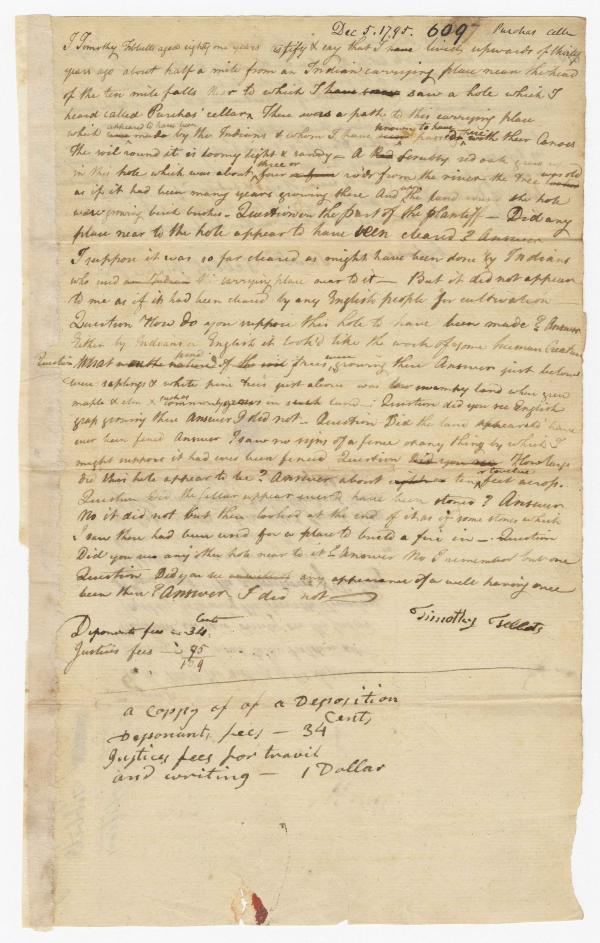 Dec 5. 1795. 6097 Purchas celler
I Timothy Tibbetts aged eighty one years testify & say that I have lived upwards of thirty
years ago about half a mile from an Indian carrying place near the head
of the ten mile falls near to which I have seen saw a hole which I
heard called Purchas' cellar. There was a path to this carrying place
which appeared to have been was made by the Indians & whom I have known to have passed there with their Canoes
The soil round it is loomy light & sandy — A Red scrubby red oak grew up
in this hole which was about three or four rods from the river the tree was old
as if it had been many years growing there And the land round the hole
was growing birch bushes — Question on the part of the plantiff — Did any
place near to the hole appear to have been cleared? Answer
I suppose it was so far cleared as might have been done by Indians
who used carrying place near to it — But it did not appear
to me as if it had been cleared by any English people for cultivation
Question How do you suppose this hole to have been made? Answer
Either by Indians or English it look'd like the work of some human Creature
Question What kind of trees were growing there Answer just below
were saplings & white pine trees just above was low swampy land where grew
maple & elm & such as commonly grows in such land — Question did you see English
grass growing there Answer I did not — Question Did the land appear to have
ever been fenced Answer I saw no signs of a fence or any thing by which I
might suppose it had ever been fenced Question Did you see How large
did this hole appear to be? Answer about eight or ten or twelve feet across.
Question Did the cellar appear ever to have been stoned? Answer
No it did not but there looked at the end of it as if some stones which
I saw there had been used for a place to build a fire in — Question
Did you see any other hole near to it? Answer No I remember but one
Question Did you see any appearance of a well having once
been there? Answer I did not
Timothy Tibbets
Cents
Deponents fees — 34
Justices fees — 95
129
a coppy of of a Deposition
Cents
Deponants fees — 34
Justices fees for travil
and writing — 1 Dollar